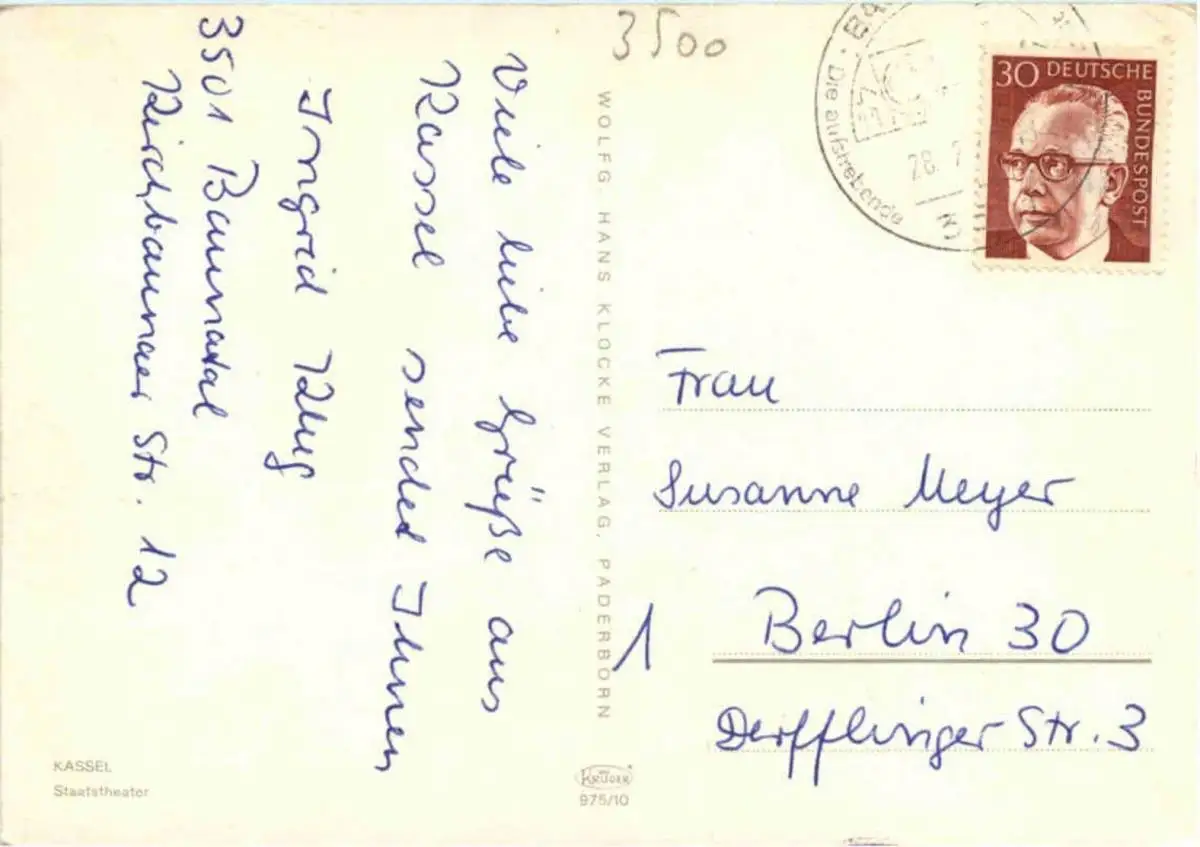 3500
Viele liebe Grüße aus
Kassel sendet Ihnen
Ingrid Klug
3501 Baunatal
Kirchbaunaer Str. 12
KASSEL
Staatstheater
WOLFG. HANS KLOCKE VERLAG, PADERBORN
KRÜGER
975/10
Die aufstrebende
28.
30 DEUTSCHE
BUNDESPOST
Frau
Susanne Meyer
1 Berlin 30
Derfflinger Str. 3